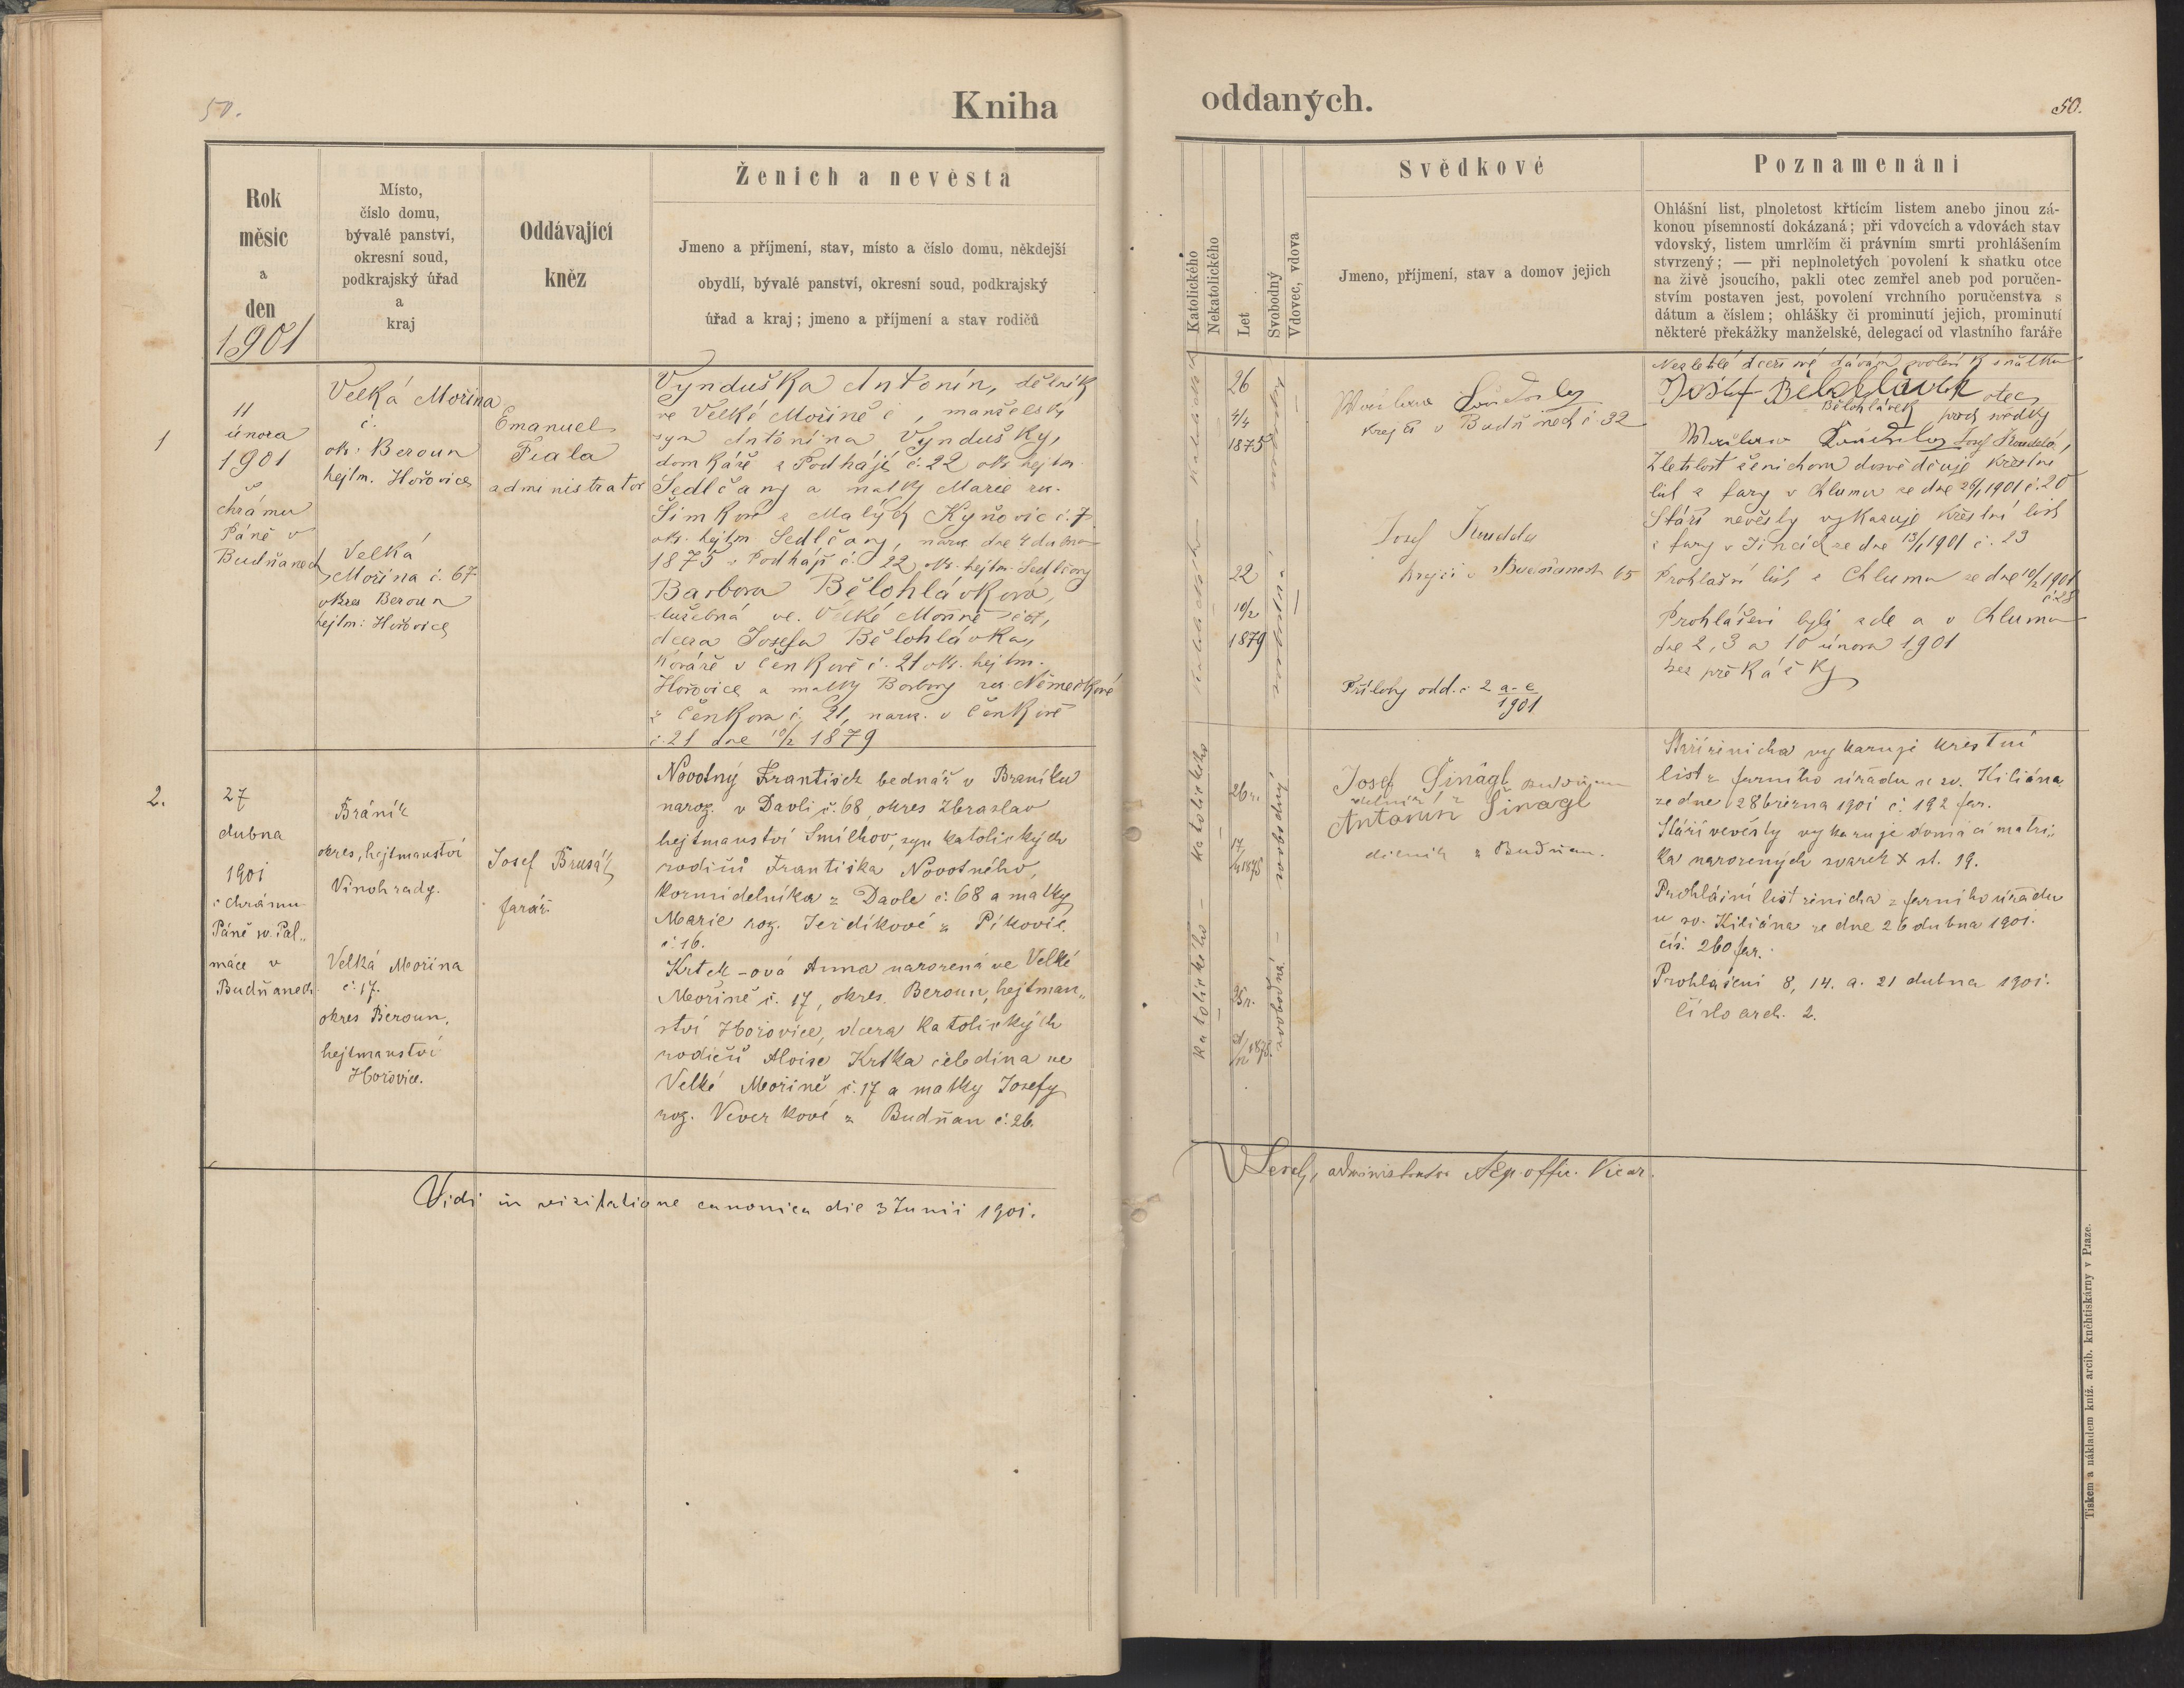 50.
Kniha
Rok
měsíc
a
den
1901
Místo,
číslo domu,
bývalé panství,
okresní soud,
podkrajský úřad
a
kraj
Oddávající
kněz
Ženich a nevěsta
Jmeno a příjmení, stav, místo a číslo domu, někdejší
obydlí, bývalé panství, okresní soud, podkrajský
úřad a kraj; jmeno a příjmení a stav rodičů
1
11
února
1901
v
chrámu
Páně v
Budňanech
Velká Mořina
č.
ok: Beroun
hejtm. Hořovice
Velká
Mořina č. 67.
okres Beroun
hejtm: Hořovice
Emanuel
Fiala
administrator
Vynduška Antonín, dělník
ve Velké Mořině č , manželský
syn Antonína Vyndušky,
domkáře z Podhájí č. 22 ok. hejtm.
Sedlčany a matky Marie roz.
Šimkové z Malých Kyňovic č. 7
ok. hejtm Sedlčany, naroz. dne 4 dubna
1875 v Podhájí č. 22 ok. hejtm. Sedlčany
Barbora Bělohlávková,
služebná ve Velké Mořině
dcera Josefa Bělohlávka,
kováře v Čenkově č. 21 ok. hejtm.
Hořovice a matky Barbory roz. Němečkové
z Čenkova č. 21, naroz. v Čenkově
č. 21 dne 10/2 1879
2.
27
dubna
1901
v chrámu
Páně sv. Pal„
máce v
Budňanech.
Bráník
okres, hejtmanství
Vinohrady.
Velká Mořina
č. 17.
okres Beroun,
hejtmanství
Hořovice.
Josef Brusák
farář.
Novotný František bednář v Braníku
naroz. v Davli č. 68, okres Zbraslav
hejtmanství Smíchov, syn katolických
rodičů Františka Novotného,
kormidelníka z Davle č. 68 a matky
Marie roz. Jeřdíkové z Pikovic
č. 16.
Krtek-ová Anna narozená ve Velké
Mořině č. 17, okres. Beroun, hejtman„
ství Hořovice, dcera katolických
rodičů Aloise Krtka čeledína ve
Velké Mořině č. 17 a matky Josefy
roz. Veverkové z Budňan č. 26.
Vidi in visitatione canonica die 3 Junii 1901.
oddaných.
50.
Katolického
Nekatolického
Let
Svobodný
Vdovec, vdova
Svědkové
Jmeno, příjmení, stav a domov jejich
Poznamenání
Ohlášní list, plnoletost křtícím listem anebo jinou zá-
konou písemností dokázaná; při vdovcích a vdovách stav
vdovský, listem umrlčím či právním smrti prohlášením
stvrzený; — při neplnoletých povolení k sňatku otce
na živě jsoucího, pakli otec zemřel aneb pod poručen-
stvím postaven jest, povolení vrchního poručenstva s
dátum a číslem; ohlášky či prominutí jejich, prominutí
některé překážky manželské, delegací od vlastního faráře
26
4/4
1875
svobodný
22
10/2
1879
svobodná
krejčí v Budňanech č. 32
Josef Koudela
krejčí v Budňanech 65
Přílohy odd. č 2 a-e
1901
Nezletilé dceři své dávám svolení k sňatku
Josef Bělohlávek otec
Bělohlávek před svědky
Josef Koudela,
Zletilost ženichova dosvědčuje křestní
list z fary v Chlumu ze dne 26/1 1901 č. 20
Stáří nevěsty vykazuje křestní list
z fary v Jincích ze dne 13/1 1901 č. 23
Prohlašní list z Chlumu ze dne 10/2 1901
č 28
Prohlášeni byli zde a v Chlumu
dne 2, 3 a 10 února 1901
bez překážky
katolického – katolického
26 r.
17/4 1875
svobodný
25 r.
1875
svobodná
Josef Šinágl Budňan
dělník z
Antonín Šinágl
dělník z Budňan.
Stáří ženicha vykazuje křestní
list z farního úřadu u sv. Kiliána
ze dne 28 března 1901 č. 192 far.
Stáří nevěsty vykazuje domácí matri„
ka narozených svazek X st. 19.
Prohlášní list ženicha z farního úřadu
u sv. Kiliána ze dne 26 dubna 1901.
čís. 260 far.
Prohlášeni 8, 14. a. 21 dubna 1901.
číslo arch. 2.
administrator Aep. offic. Vicar.
Tiskem a nákladem kníž. arcib. kněhtiskárny v Praze.